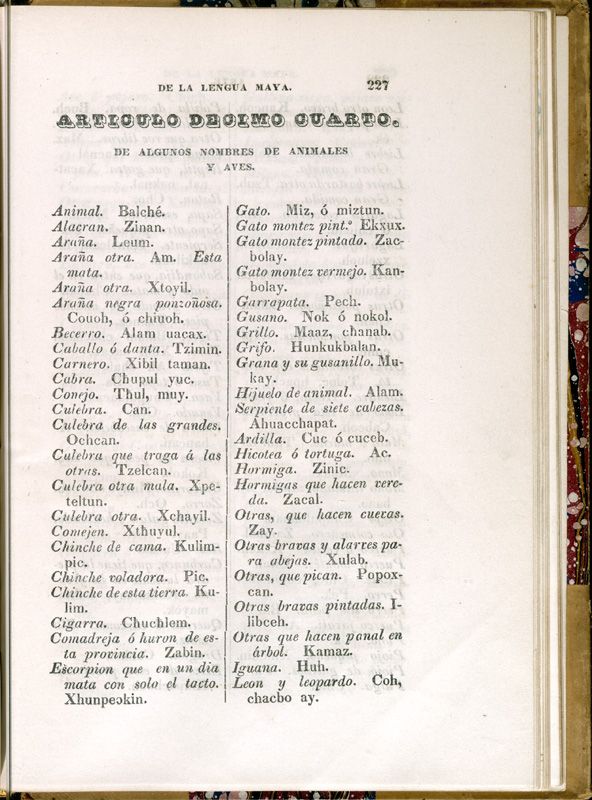 DE LA LENGUA MAYA. 227
ARTICULO DECIMO CUARTO.
DE ALGUNOS NOMBRES DE ANIMALES
Y AVES.
Animal. Balché.
Alacran. Zinan.
Araña. Leum.
Araña otra. Am. Esta
mata.
Araña otra. Xtoyil.
Araña negra ponzoñosa.
Couoh, ó chiuoh.
Becerro. Alam uacax.
Caballo ó danta. Tzimin.
Carnero. Xibil taman.
Cabra. Chupul yuc.
Conejo. Thul, muy.
Culebra. Can.
Culebra de las grandes.
Ochcan.
Culebra que traga á las
otras. Tzelcan.
Culebra otra mala. Xpe-
teltun.
Culebra otra. Xchayil.
Comejen. Xthuyul.
Chinche de cama. Kulim-
pic.
Chinche voladora. Pic.
Chinche de esta tierra. Ku-
lim.
Cigarra. Chuchlem.
Comadreja ó huron de es-
ta provincia. Zabin.
Escorpion que en un dia
mata con solo el tacto.
Xhunpeɔkin.
Gato. Miz, ó miztun.
Gato montez pint.º Ekxux.
Gato montez pintado. Zac-
bolay.
Gato montez vermejo. Kan-
bolay.
Garrapata. Pech.
Gusano. Nok ó nokol.
Grillo. Maaz, chanab.
Grifo. Hunkukbalan.
Grana y su gusanillo. Mu-
kay.
Hijuelo de animal. Alam.
Serpiente de siete cabezas.
Ahuacchapat.
Ardilla. Cuc ó cuceb.
Hicotea ó tortuga. Ac.
Hormiga. Zinic.
Hormigas que hacen vere-
da. Zacal.
Otras, que hacen cuevas.
Zay.
Otras bravas y alarves pa-
ra abejas. Xulab.
Otras, que pican. Popox-
can.
Otras bravas pintadas. I-
libceh.
Otras que hacen panal en
árbol. Kamaz.
Iguana. Huh.
Leon y leopardo. Coh,
chacbo ay.